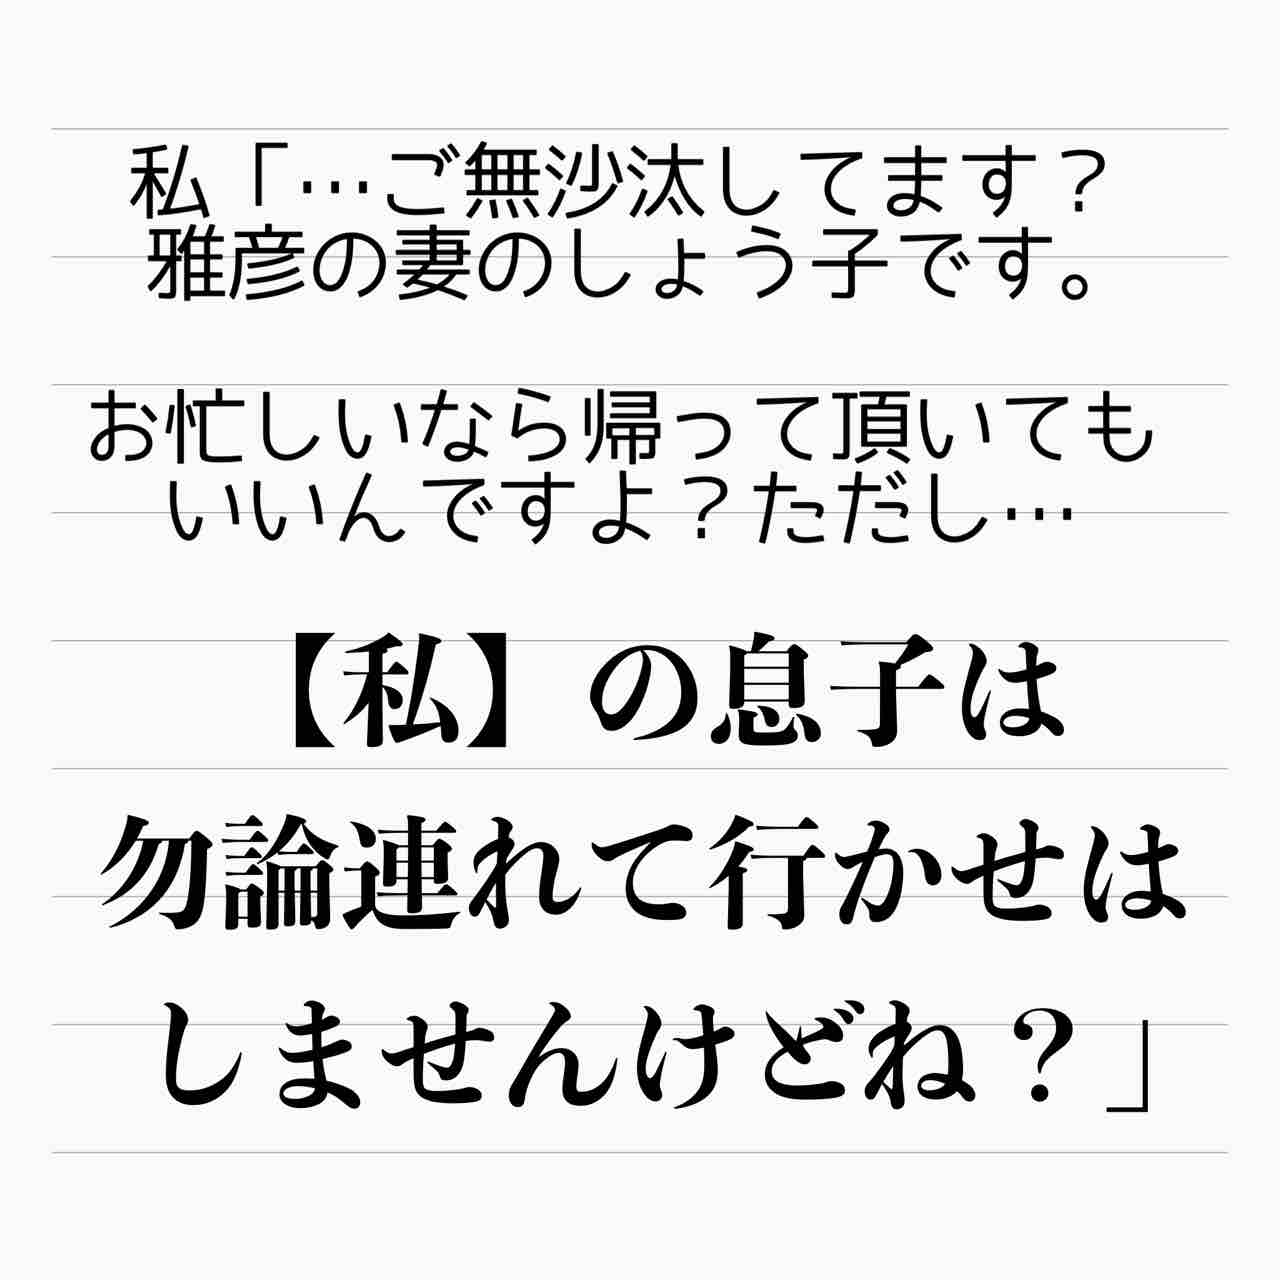 私「…ご無沙汰してます？
雅彦の妻のしょう子です。
お忙しいなら帰って頂いても
いいんですよ？ただし…
【私】の息子は
勿論連れて行かせは
しませんけどね？」